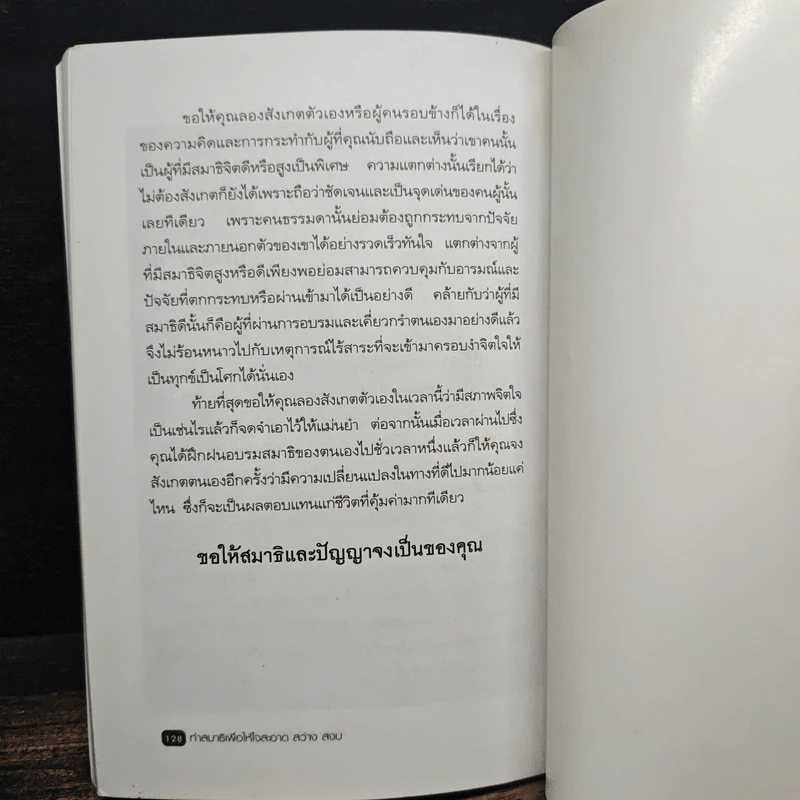 ขอให้คุณลองสังเกตตัวเองหรือผู้คนรอบข้างก็ได้ในเรื่อง
ของความคิดและการกระทำกับผู้ที่คุณนับถือและเห็นว่าเขาคนนั้น
เป็นผู้ที่มีสมาธิจิตดีหรือสูงเป็นพิเศษ ความแตกต่างนั้นเรียกได้ว่า
ไม่ต้องสังเกตก็ยังได้เพราะถือว่าชัดเจนและเป็นจุดเด่นของคนผู้นั้น
เลยทีเดียว เพราะคนธรรมดานั้นย่อมต้องถูกกระทบจากปัจจัย
ภายในและภายนอกตัวของเขาได้อย่างรวดเร็วทันใจ แตกต่างจากผู้
ที่มีสมาธิจิตสูงหรือดีเพียงพอย่อมสามารถควบคุมกับอารมณ์และ
ปัจจัยที่ตกกระทบหรือผ่านเข้ามาได้เป็นอย่างดี คล้ายกับว่าผู้ที่มี
สมาธิดีนั้นก็คือผู้ที่ผ่านการอบรมและเคี่ยวกรำตนเองมาอย่างดีแล้ว
จึงไม่ร้อนหนาวไปกับเหตุการณ์ไร้สาระที่จะเข้ามาครอบงำจิตใจให้
เป็นทุกข์เป็นโศกได้นั่นเอง
ท้ายที่สุดขอให้คุณลองสังเกตตัวเองในเวลานี้ว่ามีสภาพจิตใจ
เป็นเช่นไรแล้วก็จดจำเอาไว้ให้แม่นยำ ต่อจากนั้นเมื่อเวลาผ่านไปซึ่ง
คุณได้ฝึกฝนอบรมสมาธิของตนเองไปชั่วเวลาหนึ่งแล้วก็ให้คุณจง
สังเกตตนเองอีกครั้งว่ามีความเปลี่ยนแปลงในทางที่ดีไปมากน้อยแค่
ไหน ซึ่งก็จะเป็นผลตอบแทนแก่ชีวิตที่คุ้มค่ามากทีเดียว
ขอให้สมาธิและปัญญาจงเป็นของคุณ
128 ทำสมาธิเพื่อให้ใจสะอาด สว่าง สงบ